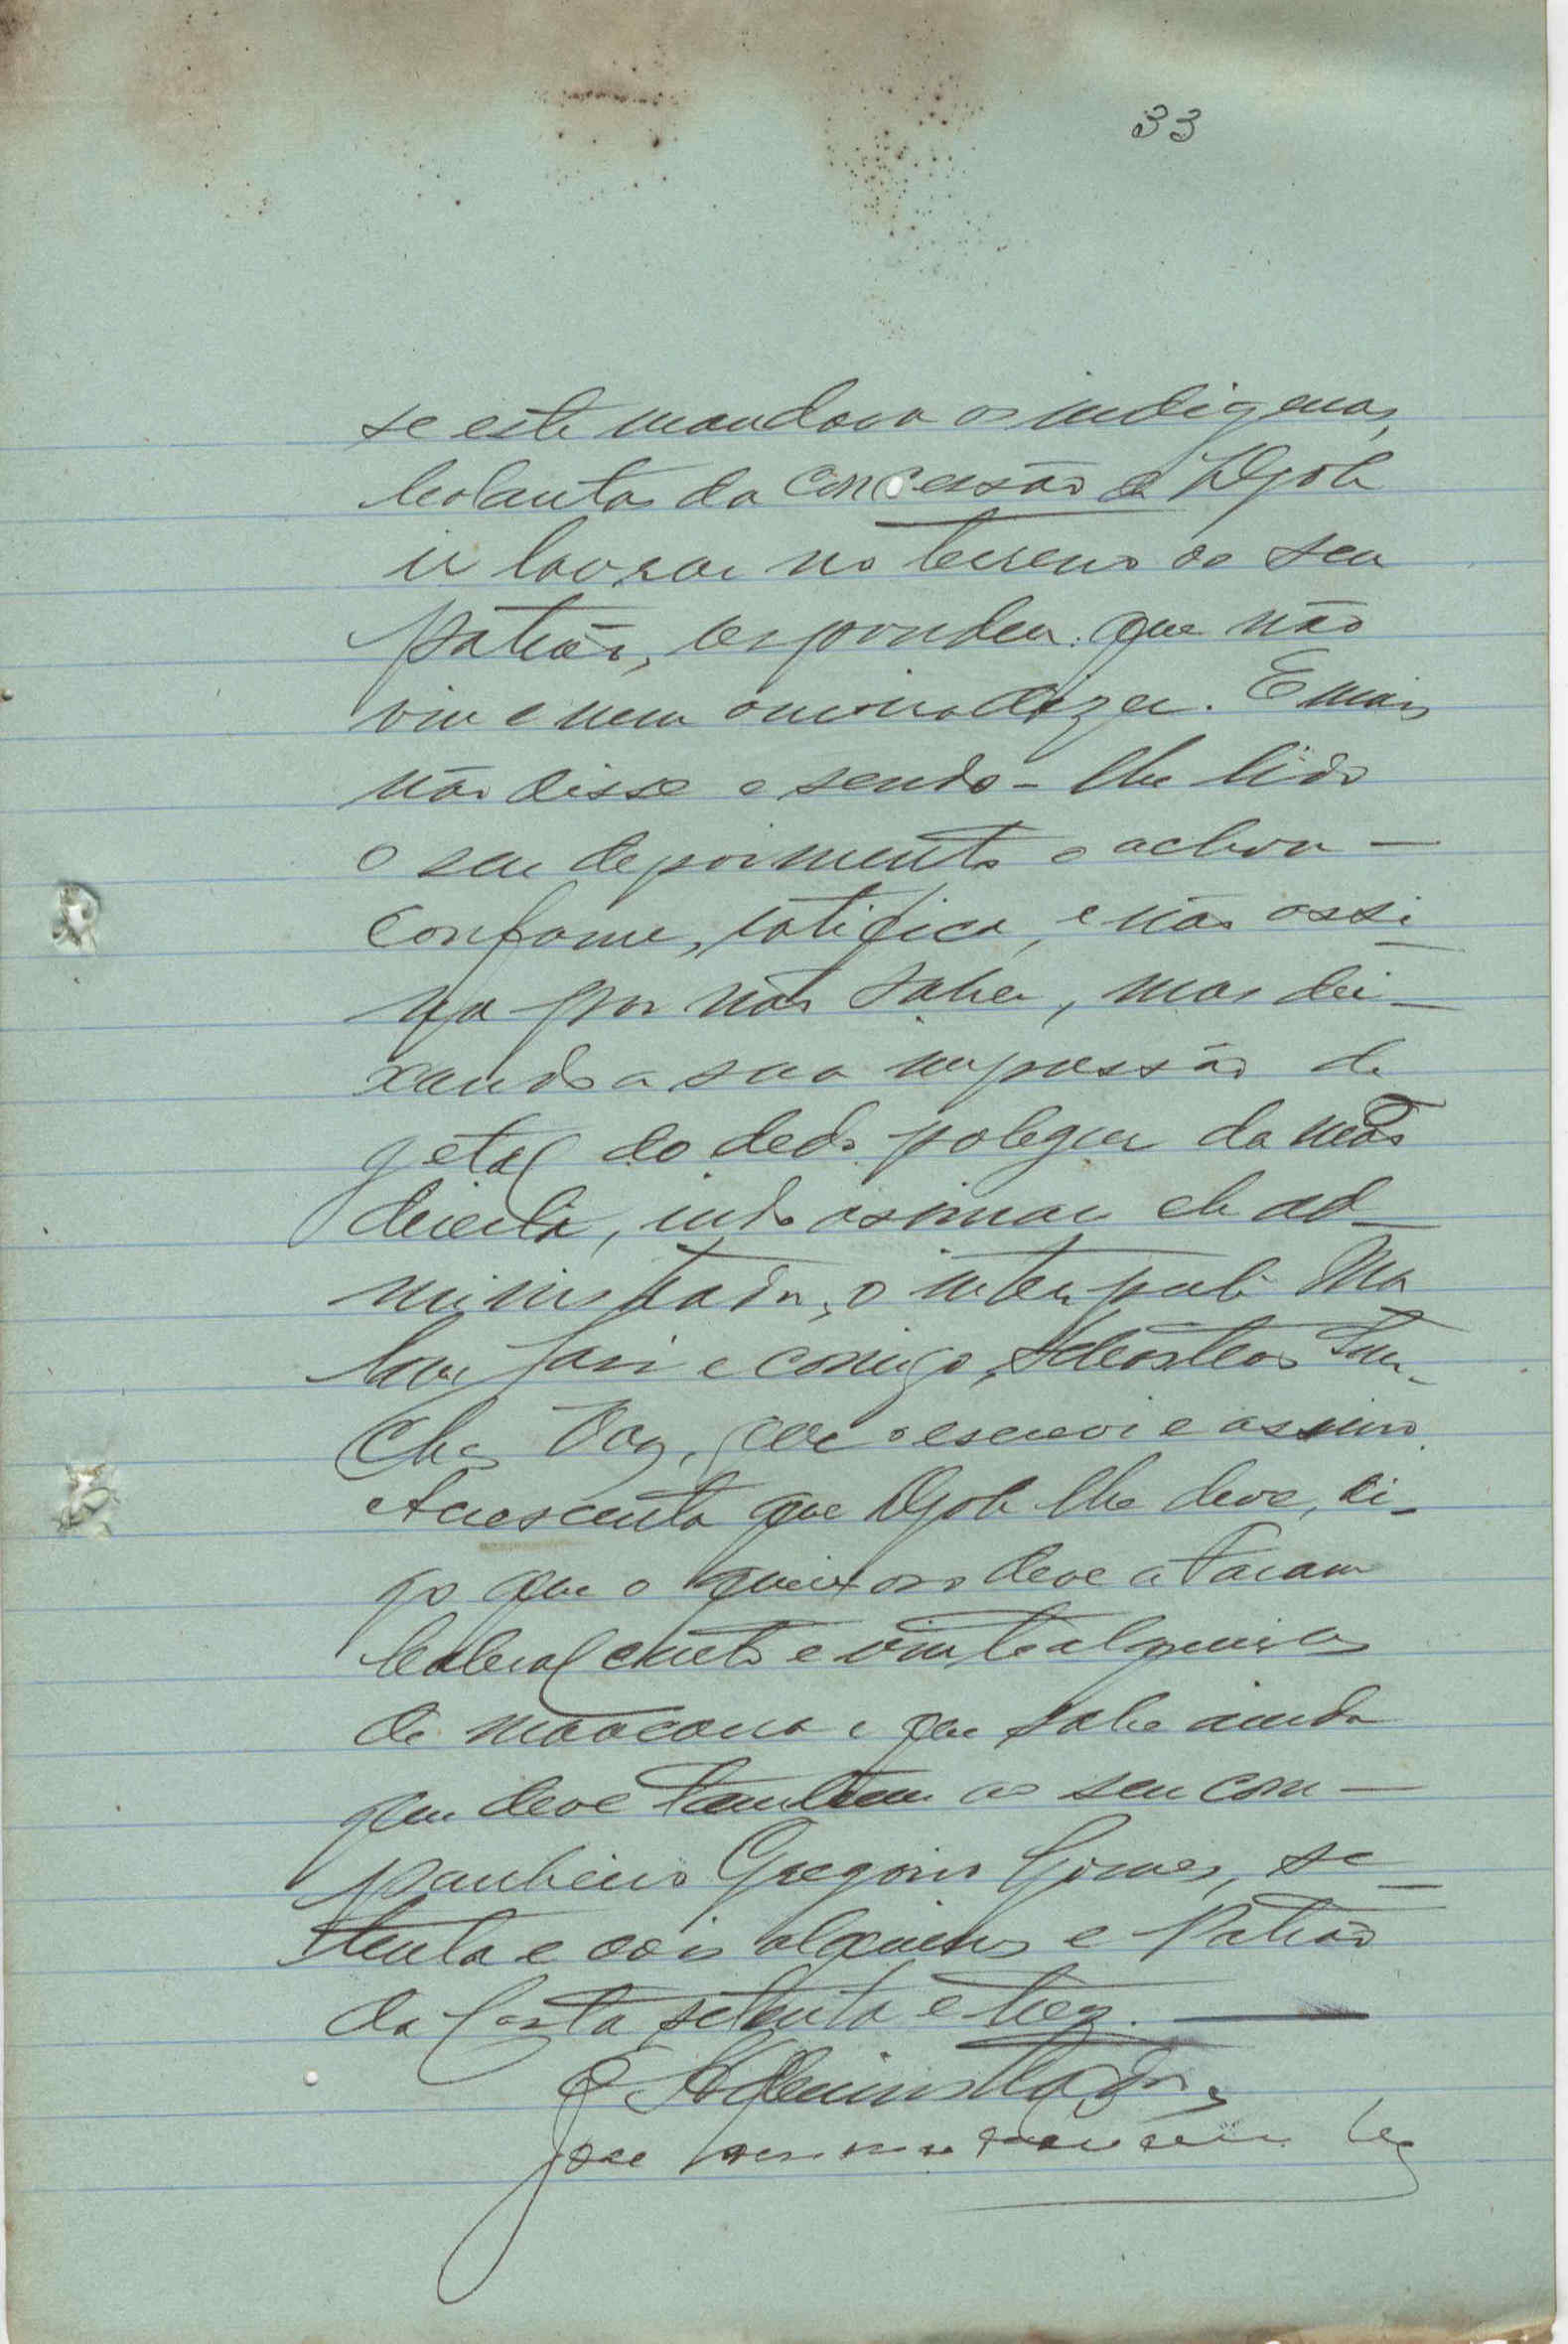 33
se este mandava os indigenas,
balantas da concessão de Djob
ir lavrar no terreno do seu
patrão, respondeu: que não
viu e nem ouvira dizer. E mais
não disse e sendo-lhe lido
o seu depoimento o achou
conforme, ratifica, e não assi-
na por não saber, mas dei-
xando a sua impressão di-
getal do dedo polegar da mão
direita, indo assinar ele ad-
ministrador, o interprete Ma
e comigo,
Vaz, que o escrevi e assino.
Acrescenta que Djob lhe deve, di-
go que o queixoso deve a
Cabral cento e vinte alqueires
de mancarra e que sabe ainda
que deve tambem ao seu com-
panheiro Gregorio Gomes, se-
tenta e dois alqueires e Patrão
da Costa setenta e trez.
O Administrador,
José